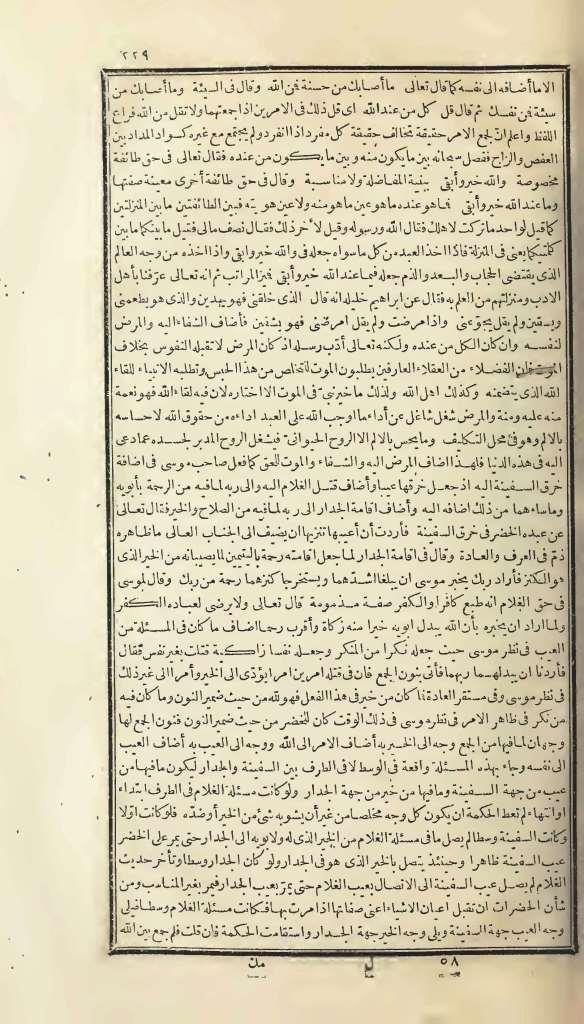 ٢٢٩
الا ما أضافه الى نفسه كما قال تعالى ما أصابك من حسنة فمن الله وقال فى السيئة وما أصابك من
سيئة فمن نفسك ثم قال قل كل من عند الله أى قل ذلك فى الامرين اذا جمعتهما ولا تقل من الله فراع
اللفظ واعلم ان لجمع الامر حقيقة تخالف حقيقة كل مفرد اذا انفرد ولم يجتمع مع غيره كسواد المداد بين
العفص والزاج ففصل سبحانه بين ما يكون منه وبين ما يكون من عنده فقال تعالى فى حق طائفة
مخصوصة والله خير وأبقى ببنية المفاضلة ولا مناسبة وقال فى حق طائفة أخرى معينة صفتها
وما عند الله خير وأبقى فما هو عنده ما هو عين ما هو منه ولا عين هويته فبين الطائفتين ما بين المنزلتين
كما قيل لواحد ما تركت لاهلك فقال الله ورسوله وقيل لآخر ذلك فقال نصف مالى فقيل ما بينكما ما بين
كلمتيكما يعنى فى المنزلة فاذا أخذ العبد من كل ما سواه جعله فى والله خير وابقى واذا اخذه من وجه العالم
الذى يقتضى الحجاب والبعد والذم جعله فيما عند الله خير وأبقى فميز المراتب ثم انه تعالى عرّفنا بأهل
الادب ومنزلتهم من العلم به فقال عن ابراهيم خليله انه قال الذى خلقنى فهو يهدين والذى هو يطعمنى
ويسقين ولم يقل يجوّعنى واذا مرضت ولم يقل امرضنى فهو يشفين فأضاف الشفاء اليه والمرض
لنفسه وان كان الكل من عنده ولكنه تعالى أدّب رسله اذ كان المرض لا تقبله النفوس بخلاف
الموت فان الفضلاء من العقلاء العارفين يطلبون الموت للتخلص من هذا الحبس وتطلبه الانبياء للقاء
الله الذى يتضمنه وكذلك اهل الله ولذلك ما خير نبىّ فى الموت الا اختاره لان فيه لقاء الله فهو نعمة
منه عليه ومنة والمرض شغل شاغل عن أداء ما اوجب الله على العبد اداءه من حقوق الله لاحساسه
بالالم وهو فى محل التكليف وما يحس بالالم الا الروح الحيوانى فيشغل الروح المدبر لجسده عما دعى
اليه فى هذه الدنيا فلهذا اضاف المرض اليه والشفاء والموت للحق كما فعل صاحب موسى فى اضافة
خرق السفينة اليه اذ جعل خرقها عيبا وأضاف قتل الغلام اليه والى ربه لما فيه من الرحمة بأبويه
وما ساءهما من ذلك اضافه اليه وأضاف اقامة الجدار الى ربه لما فيه من الصلاح والخير فقال تعالى
عن عبده الخضر فى خرق السفينة فأردت أن أعيبها تنزيها ان يضيف الى الجناب العالى ما ظاهره
ذمّ فى العرف والعادة وقال فى اقامة الجدار لما جعل اقامته رحمة باليتيمين لما يصيبانه من الخير الذى
هو الكنز فأراد ربك يخبر موسى ان يبلغا اشدّهما ويستخرجا كنزهما رحمة من ربك وقال لموسى
فى حق الغلام انه طبع كافرا والكفر صفة مذمومة قال تعالى ولا يرضى لعباده الكفر
ولما اراد ان يخبره بأن الله يبدل ابويه خيرا منه زكاة وأقرب رحما اضاف ما كان فى المسئلة من
العيب فى نظر موسى حيث جعله نكرا من المنكر وجعله نفسا زاكية قتلت بغير نفس فقال
فأردنا ان يبدلهما ربهما فأتى بنون الجمع فان فى قتله امرين امر ايؤدّى الى الخير وأمر الى غير ذلك
فى نظر موسى وفى مستقر العادة فما كان من خير فى هذا الفعل فهو لله من حيث ضمير النون وما كان فيه
من نكر فى ظاهر الامر فى نظر موسى فى ذلك الوقت كان للخضر من حيث ضمير النون فنون الجمع لها
وجهان لما فيها من الجمع وجه الى الخير به أضاف الامر الى الله ووجه الى العيب به أضاف العيب
الى نفسه وجاء بهذه المسئلة واقعة فى الوسط لا فى الطرف بين السفينة والجدار ليكون ما فيها من
عيب من جهة السفينة وما فيها من خير من جهة الجدار ولو كانت مسئلة الغلام فى الطرف ابتداء
او انتهاء لم تعط الحكمة ان يكون كل وجه مخلصا من غير أن يشوبه شىء من الخير أو ضدّه فلو كانت اوّلا
وكانت السفينة وسطا لم يصل ما فى مسئلة الغلام من الخير الذى له ولابويه الى الجدار حتى يمر على الخضر
عيب السفينة ظاهرا وحينئذ يتصل بالخير الذى هو فى الجدار ولو كان الجدار وسطا وتأخر حديث
الغلام لم يصل عيب السفينة الى الاتصال بعيب الغلام حتى يمرّ بعيب الجدار فيمر بغير المناسب ومن
شأن الحضرات ان تقبل أعيان الاشياء اعنى صفاتها اذا مرت بها فكانت مسئلة الغلام وسطا فيلى
وجه العيب جهة السفينة ويلى وجه الخير جهة الجدار واستقامت الحكمة فان قلت فلم جمع بين الله
٥٨ ل من